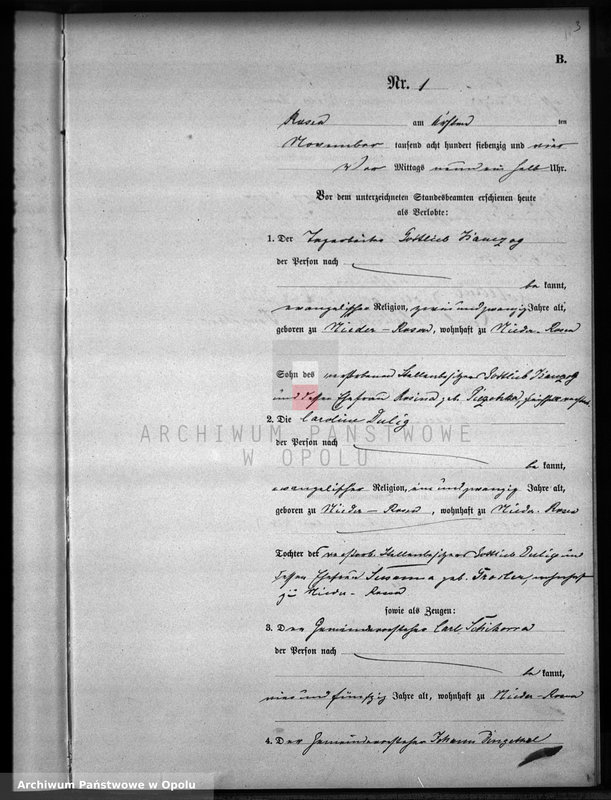 3
B.
Nr. 1
Rosen am ersten ten
November tausend acht hundert siebenzig und vier
Vor Mittags neun ein halb Uhr.
Vor dem unterzeichneten Standesbeamten erschienen heute
als Verlobte:
1. Der Tagearbeiter Gottlieb
der Person nach
be kannt,
evangelischer Religion, zwei und zwanzig Jahre alt,
geboren zu Nieder-Rosen, wohnhaft zu Nieder-Rosen
Sohn des verstorbenen Stellenbesitzers Gottlieb
und dessen Ehefrau Rosina geb.
ARCHIWUM PAŃSTWOWE
W OPOLU
2. Die Caroline Dulig
der Person nach
be kannt,
evangelischer Religion, ein und zwanzig Jahre alt,
geboren zu Nieder-Rosen, wohnhaft zu Nieder-Rosen
Tochter des verstorb. Stellenbesitzers Gottlieb Dulig und
dessen Ehefrau Susanna geb. wohnhaft
zu Nieder-Rosen
sowie als Zeugen:
3. Der Gemeindevorsteher Carl
der Person nach
be kannt,
vier und fünfzig Jahre alt, wohnhaft zu Nieder-Rosen
4. Der Gemeindevorsteher Johann
Archiwum Państwowe w Opolu